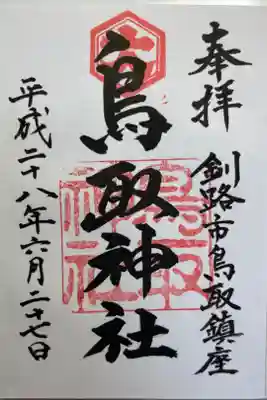 奉拝
釧路市鳥取鎮座
鳥取神社
平成二十八年六月二十七日
鳥取神社